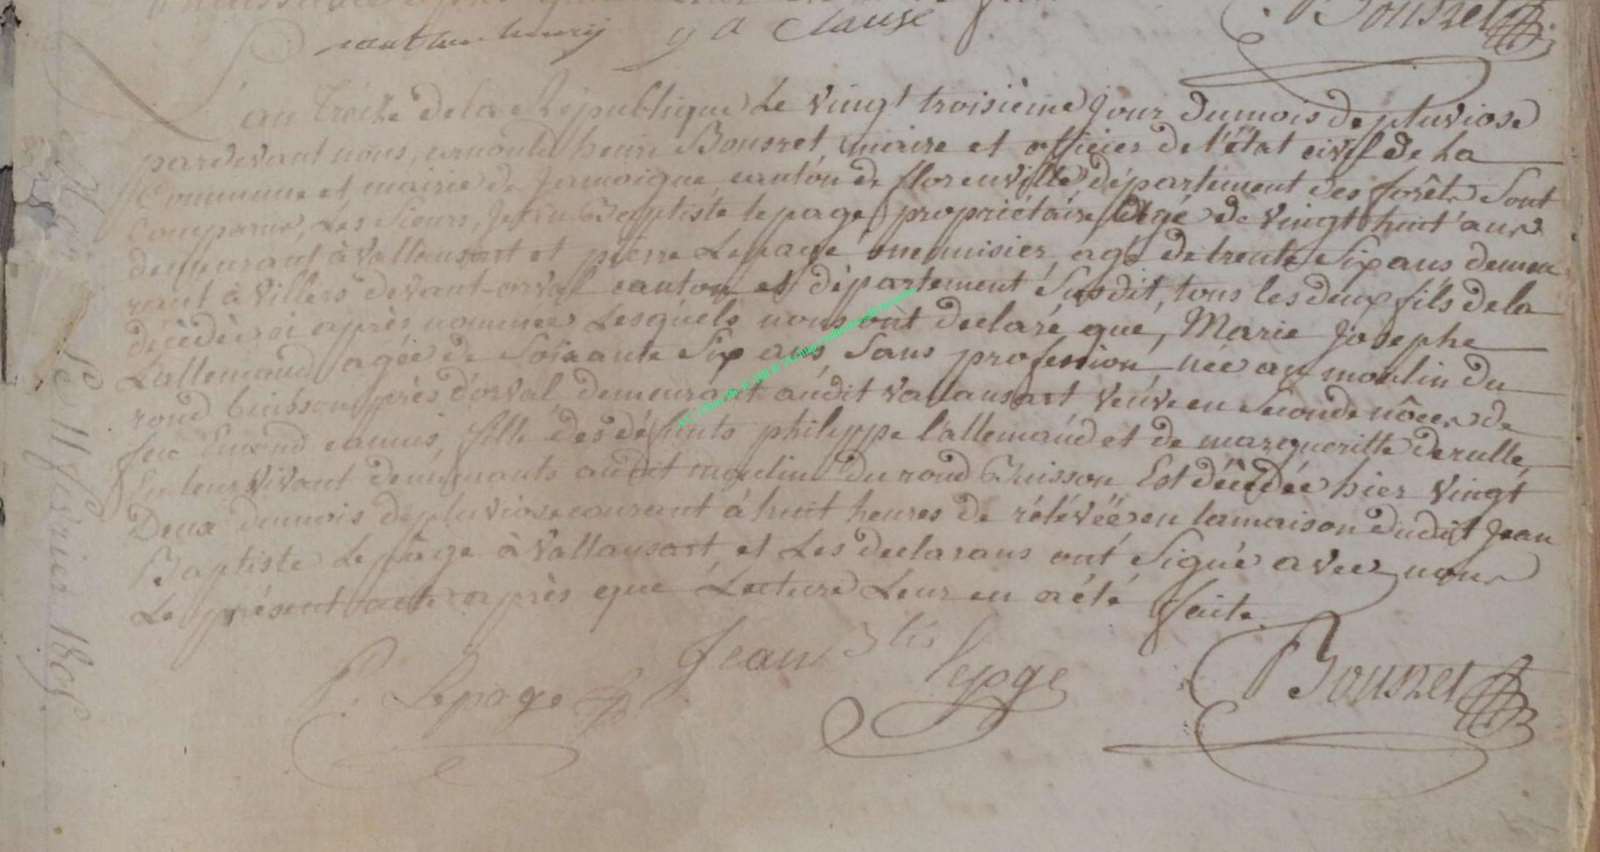 y a Clause
Bousret
L'an treize de la République Le vingt troisième jour du mois de pluviose
pardevant nous, arnould henri Bousret maire et officier de l'état civil de la
Commune et mairie de Jamoigne, canton de florenville département des forêts Sont
Comparus, Les Sieurs, Jean Baptiste lepage, propriétaire âgé de vingt huit ans
demeurant à Vallansart et pierre Lepage menuisier, agé de trente Six ans demeu
rant à Villers devant-orval canton et département Susdit, tous les deux fils de la
décédée ci après nommée Lesquels nous ont declaré que, Marie Josephe
Lallemand agée de Soixante Six ans Sans profession née au moulin du
rond buisson près d'orval demeurant audit vallansart veuve en Seconde nôces de
feu Emond camus, fille des défunts philippe lallemand et de margueritte derulle,
En leur vivant demeurants audit moulin du rond Buisson Est décédée hier vingt
Deux du mois de pluviose courant à huit heures de rélévée en la maison dudit Jean
Baptiste Lepage à Vallansart et Les declarans ont Signé avec nous
Le présent acte après que Lecture Leur en a été faite.
P. Lepage Jean Btis lepge Bousret
Le 11 fevrier 1805